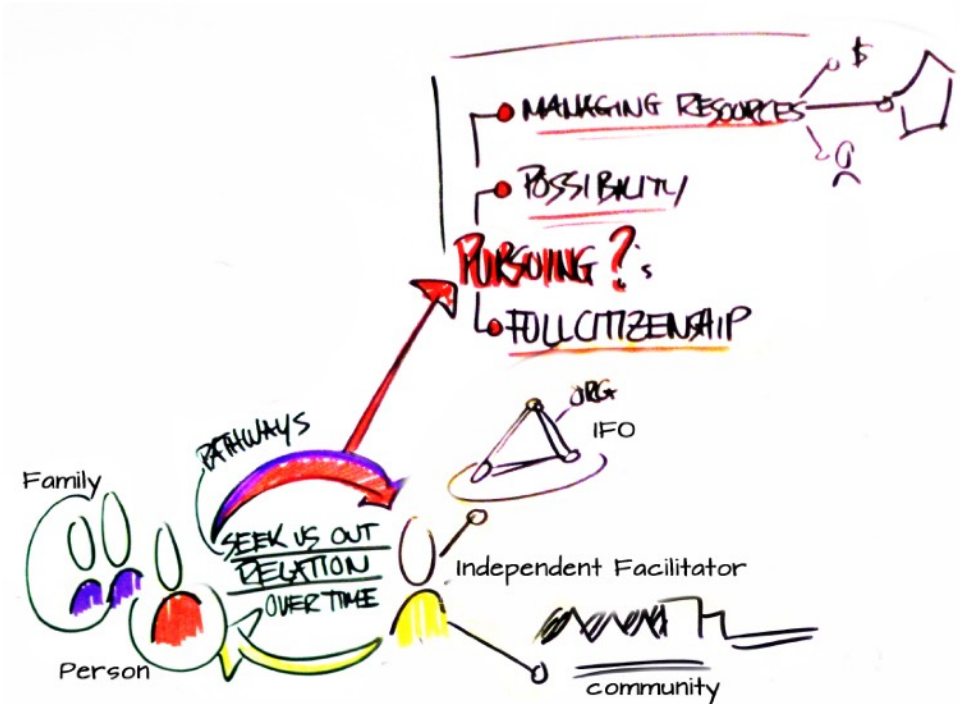 $
MANAGING RESOURCES
POSSIBILITY
PURSUING ?'s
FULL CITIZENSHIP
ORG
IFO
PATHWAYS
Family
SEEK US OUT
RELATION
OVER TIME
Independent Facilitator
Person
community